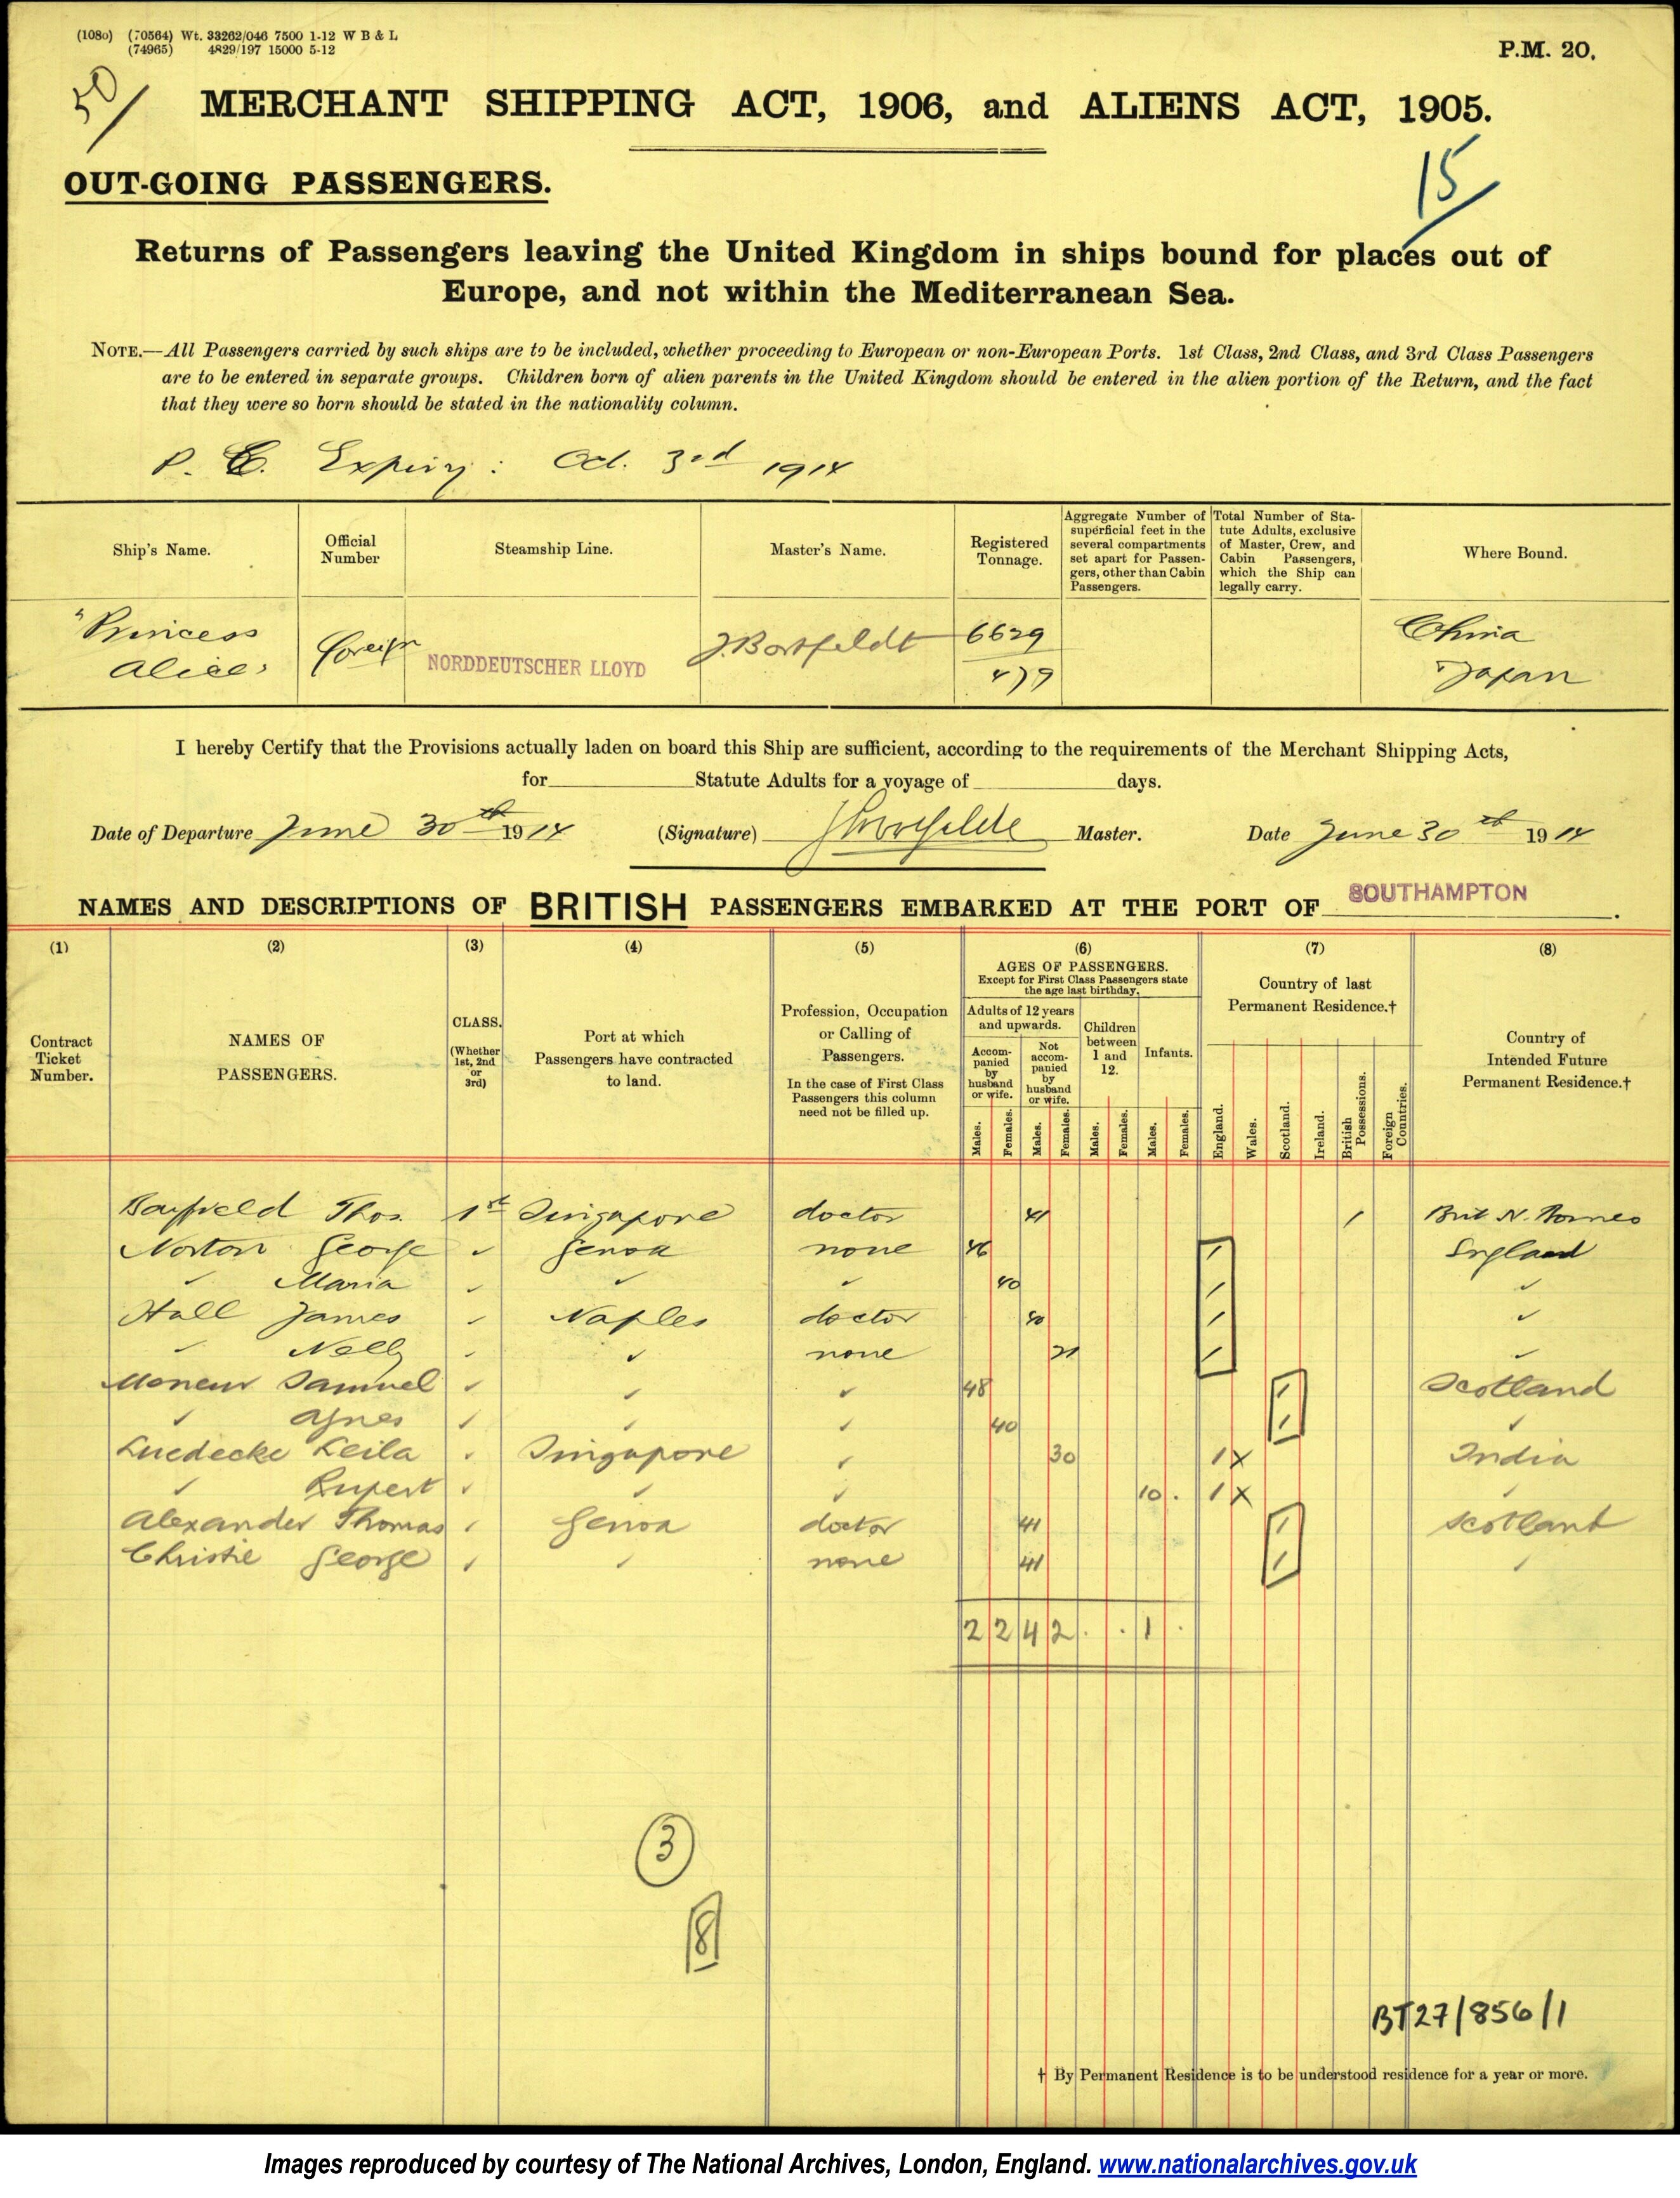 (1080) (70564) Wt. 33262/046 7500 1-12 W B & L
(74965) 4829/197 15000 5-12
P.M. 20.
50/
MERCHANT SHIPPING ACT, 1906, and ALIENS ACT, 1905.
15
OUT-GOING PASSENGERS.
Returns of Passengers leaving the United Kingdom in ships bound for places out of
Europe, and not within the Mediterranean Sea.
NOTE.—All Passengers carried by such ships are to be included, whether proceeding to European or non-European Ports. 1st Class, 2nd Class, and 3rd Class Passengers
are to be entered in separate groups. Children born of alien parents in the United Kingdom should be entered in the alien portion of the Return, and the fact
that they were so born should be stated in the nationality column.
P. C. Expiry: Oct. 3rd 1914
Ship's Name. Official Number Steamship Line. Master's Name. Registered Tonnage. Aggregate Number of superficial feet in the several compartments set apart for Passengers, other than Cabin Passengers. Total Number of Statute Adults, exclusive of Master, Crew, and Cabin Passengers, which the Ship can legally carry. Where Bound.
"Princess Alice" Foreign NORDDEUTSCHER LLOYD J. Bortfeldt 6629 China
479 Japan
I hereby Certify that the Provisions actually laden on board this Ship are sufficient, according to the requirements of the Merchant Shipping Acts,
for Statute Adults for a voyage of days.
Date of Departure June 30th 1914 (Signature) Master. Date June 30th 1914
NAMES AND DESCRIPTIONS OF BRITISH PASSENGERS EMBARKED AT THE PORT OF SOUTHAMPTON.
(1) (2) (3) (4) (5) (6) (7) (8)
Contract Ticket Number.
NAMES OF PASSENGERS.
CLASS. (Whether 1st, 2nd or 3rd)
Port at which Passengers have contracted to land.
Profession, Occupation or Calling of Passengers. In the case of First Class Passengers this column need not be filled up.
AGES OF PASSENGERS. Except for First Class Passengers state the age last birthday.
Adults of 12 years and upwards.
Accompanied by husband or wife.
Not accompanied by husband or wife.
Children between 1 and 12.
Infants.
Males. Females. Males. Females. Males. Females. Males. Females.
Country of last Permanent Residence.†
England. Wales. Scotland. Ireland. British Possessions. Foreign Countries.
Country of Intended Future Permanent Residence.†
Bayfield Thos. 1st Singapore doctor 41 / Brit N. Borneo
Norton George ✓ Genoa none 46 / England
✓ Maria ✓ ✓ ✓ 40 / ✓
Hall James ✓ Naples doctor 50 / ✓
✓ Nelly ✓ ✓ none 21 / ✓
Samuel ✓ ✓ ✓ 48 / Scotland
✓ Agnes ✓ ✓ ✓ 40 / ✓
Luedecke Leila ✓ Singapore ✓ 30 1 X India
✓ Rupert ✓ ✓ ✓ 10. 1 X ✓
Alexander Thomas ✓ Genoa doctor 41 / Scotland
Christie George ✓ ✓ none 41 / ✓
2 2 4 2 . . 1 .
3
8
BT27/856/1
† By Permanent Residence is to be understood residence for a year or more.
Images reproduced by courtesy of The National Archives, London, England. www.nationalarchives.gov.uk